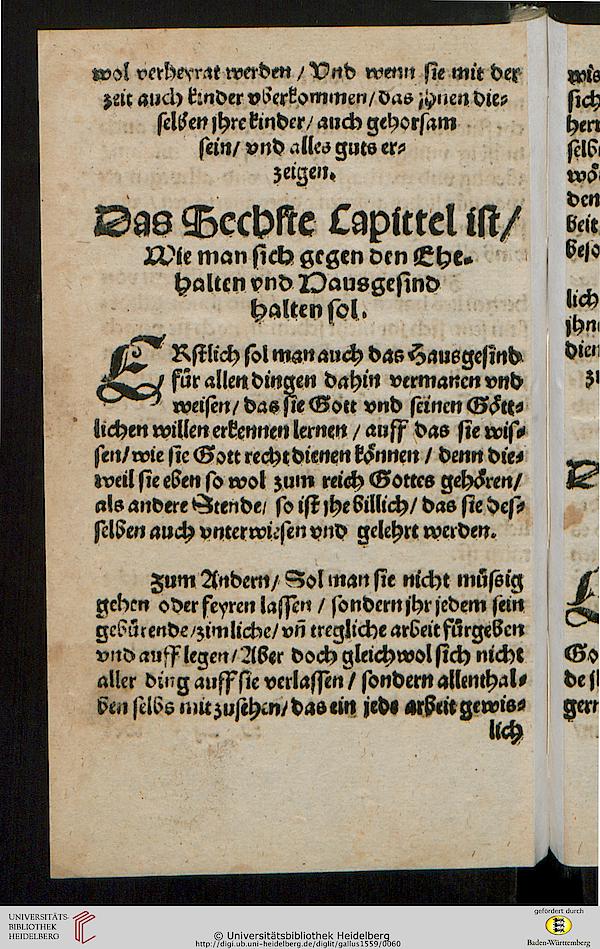 wol verheyrat werden / Vnd wenn sie mit der
zeit auch kinder vberkommen / das jhnen die⸗
selben jhre kinder / auch gehorsam
sein / vnd alles guts er⸗
zeigen.
Das Sechste Capittel ist /
Wie man sich gegen den Ehe⸗
halten vnd Hausgesind
halten sol.
ERstlich sol man auch das Hausgesind
für allen dingen dahin vermanen vnd
weisen / das sie Gott vnd seinen Gött⸗
lichen willen erkennen lernen / auff das sie wis⸗
sen / wie sie Gott recht dienen können / denn die⸗
weil sie eben so wol zum reich Gottes gehören /
als andere Stende / so ist jhe billich / das sie des⸗
selben auch vnterwiesen vnd gelehrt werden.
Zum Andern / Sol man sie nicht müssig
gehen oder feyren lassen / sondern jhr jedem sein
gebürende / zimliche / vñ tregliche arbeit fürgeben
vnd auff legen / Aber doch gleichwol sich nicht
aller ding auff sie verlassen / sondern allenthal⸗
ben selbs mit zusehen / das ein jede arbeit gewis⸗
lich
wis
sich
herr
selb
wö
den
beit
beso
lich
jhn
dien
zu
D
Go
de j
gern
UNIVERSITÄTS-
BIBLIOTHEK
HEIDELBERG
© Universitätsbibliothek Heidelberg
http://digi.ub.uni-heidelberg.de/diglit/gallus1559/0060
gefördert durch
Baden-Württemberg